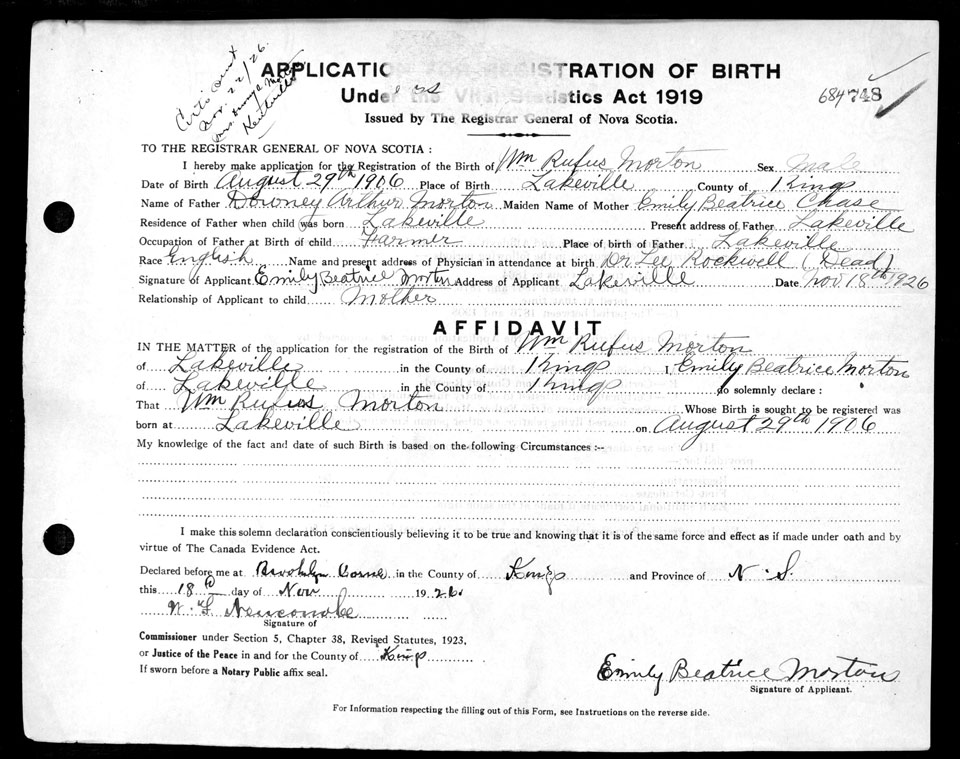 Nov. 22/26.
Kentville
APPLICATION FOR REGISTRATION OF BIRTH
Under the Vital Statistics Act 1919
684748
Issued by The Registrar General of Nova Scotia.
TO THE REGISTRAR GENERAL OF NOVA SCOTIA :
I hereby make application for the Registration of the Birth of Wm Rufus Morton Sex Male
Date of Birth August 29th 1906 Place of Birth Lakeville County of Kings
Name of Father Downey Arthur Morton Maiden Name of Mother Emily Beatrice Chase
Residence of Father when child was born Lakeville Present address of Father Lakeville
Occupation of Father at Birth of child Farmer Place of birth of Father Lakeville
Race English Name and present address of Physician in attendance at birth Dr Lee Rockwell (Dead)
Signature of Applicant Emily Beatrice Morton Address of Applicant Lakeville Date Nov 18th 1926
Relationship of Applicant to child Mother
AFFIDAVIT
IN THE MATTER of the application for the registration of the Birth of Wm Rufus Morton
of Lakeville in the County of Kings I, Emily Beatrice Morton
of Lakeville in the County of Kings do solemnly declare :
That Wm Rufus Morton Whose Birth is sought to be registered was
born at Lakeville on August 29th 1906
My knowledge of the fact and date of such Birth is based on the following Circumstances :--
I make this solemn declaration conscientiously believing it to be true and knowing that it is of the same force and effect as if made under oath and by
virtue of The Canada Evidence Act.
Declared before me at Brooklyn Corner in the County of Kings and Province of N. S.
this 18th day of Nov 1926.
Newcombe
Signature of
Commissioner under Section 5, Chapter 38, Revised Statutes, 1923,
or Justice of the Peace in and for the County of Kings
If sworn before a Notary Public affix seal.
Emily Beatrice Morton
Signature of Applicant.
For Information respecting the filling out of this Form, see Instructions on the reverse side.